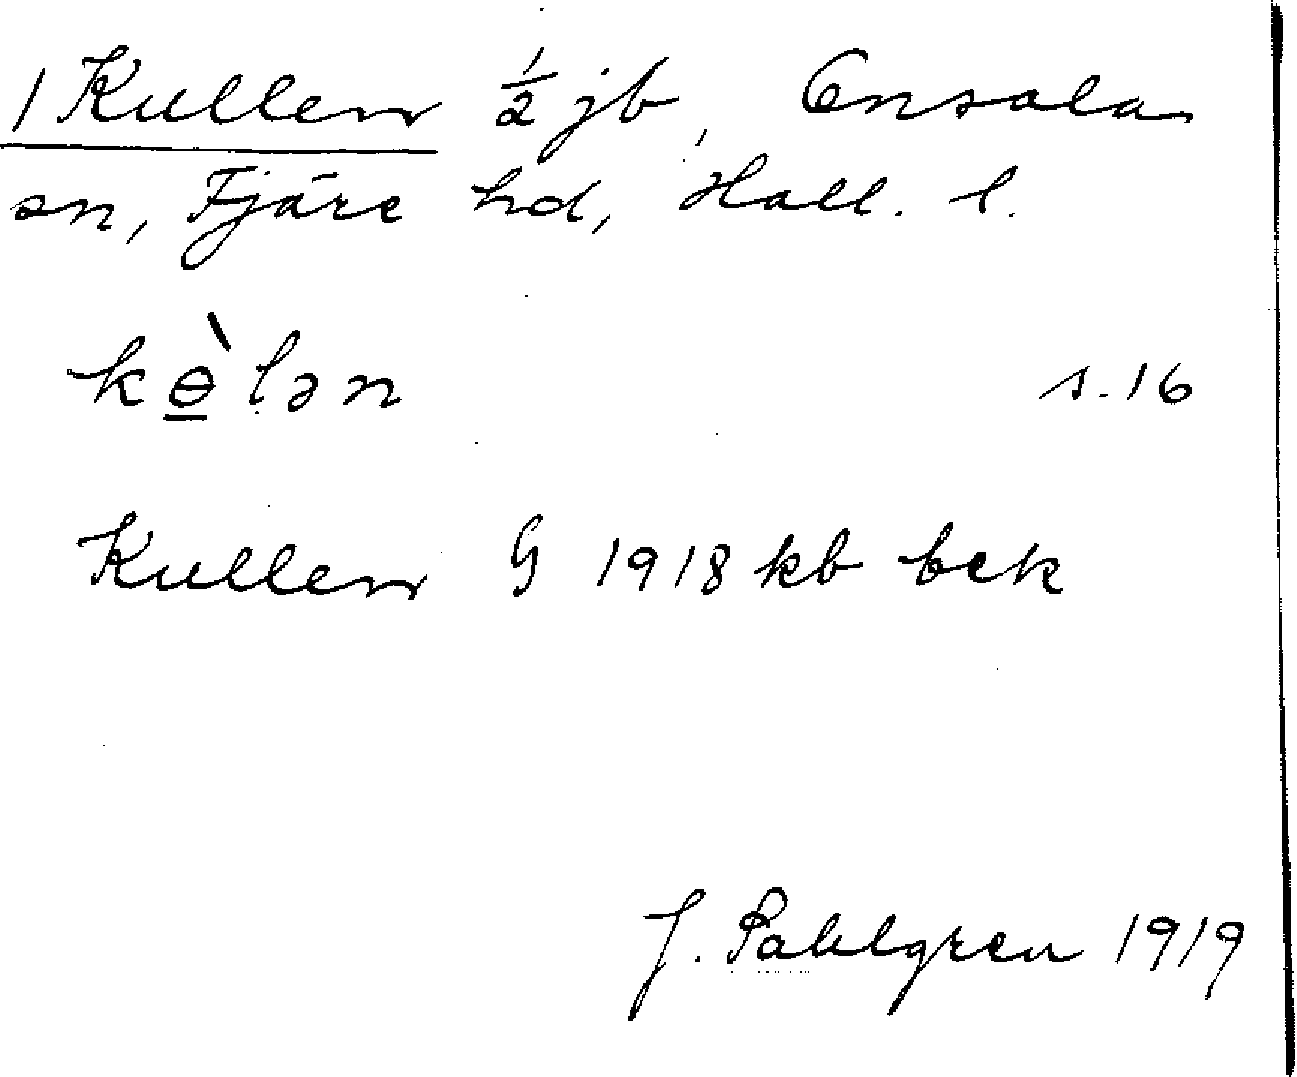 1 Kullen ½ jb, Onsala
sn, Fjäre hd, Hall. l.
kɵ̀lən s. 16
Kullen G 1918 kb bek
J. Sahlgren 1919